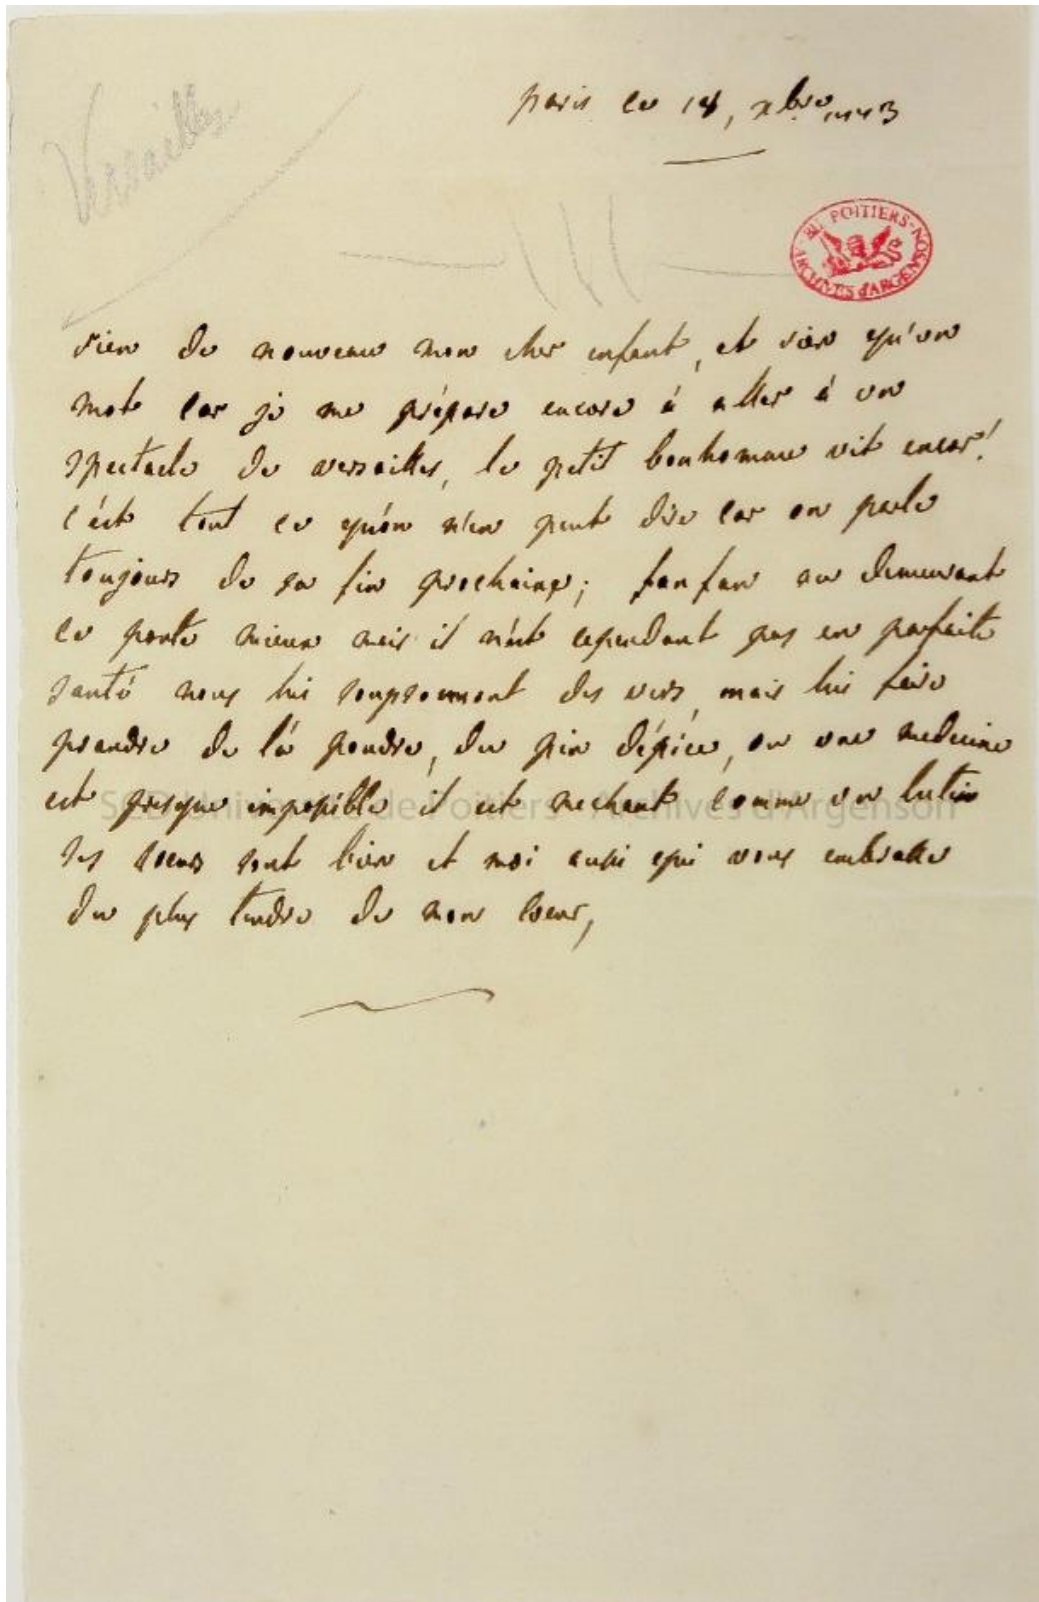 Versailles
paris ce 14, xbre 1773
BU POITIERS - ARCHIVES d'ARGENSON
rien de nouveau mon cher enfant, et rien qu'un
mot car je me prépare encore à aller à un
spectacle de versailles, le petit bonhomme vit encor!
c'est tout ce qu'on n'en peut dire car on parle
toujours de sa fin prochaine; fanfan au demeurant
ce porte mieux mais il n'est cependant pas en parfaite
santé nous lui soupsonnont des vers, mais lui faire
prandre de la poudre, du pin d'épice, ou une medecine
est presque impossible il est mechant comme un lutin
ses soeurs sont bien et moi aussi qui vous embrasse
du plus tendre de mon coeur,
SCD Université de Poitiers - Archives d'Argenson